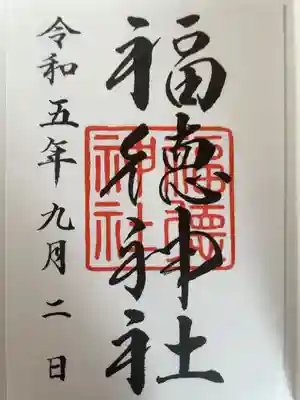 福徳神社
福徳神社
令和五年九月二日